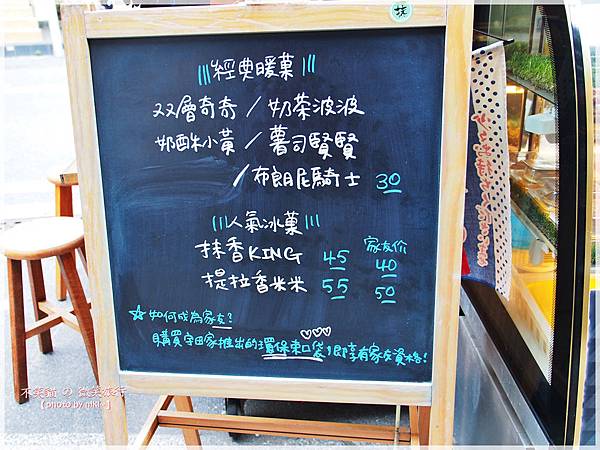 經典暖菓
双層奇奇 / 奶茶波波
奶酥小黃 / 薯司賢賢
/ 布朗尼騎士 30
人氣冰菓
抹香KING 45 家友价 40
提拉香米米 55 50
☆如何成為家友?
購買宇田家推出的環保束口袋,即享有家友資格!
不笑貓 の 微笑旅行
【photo by niki~】